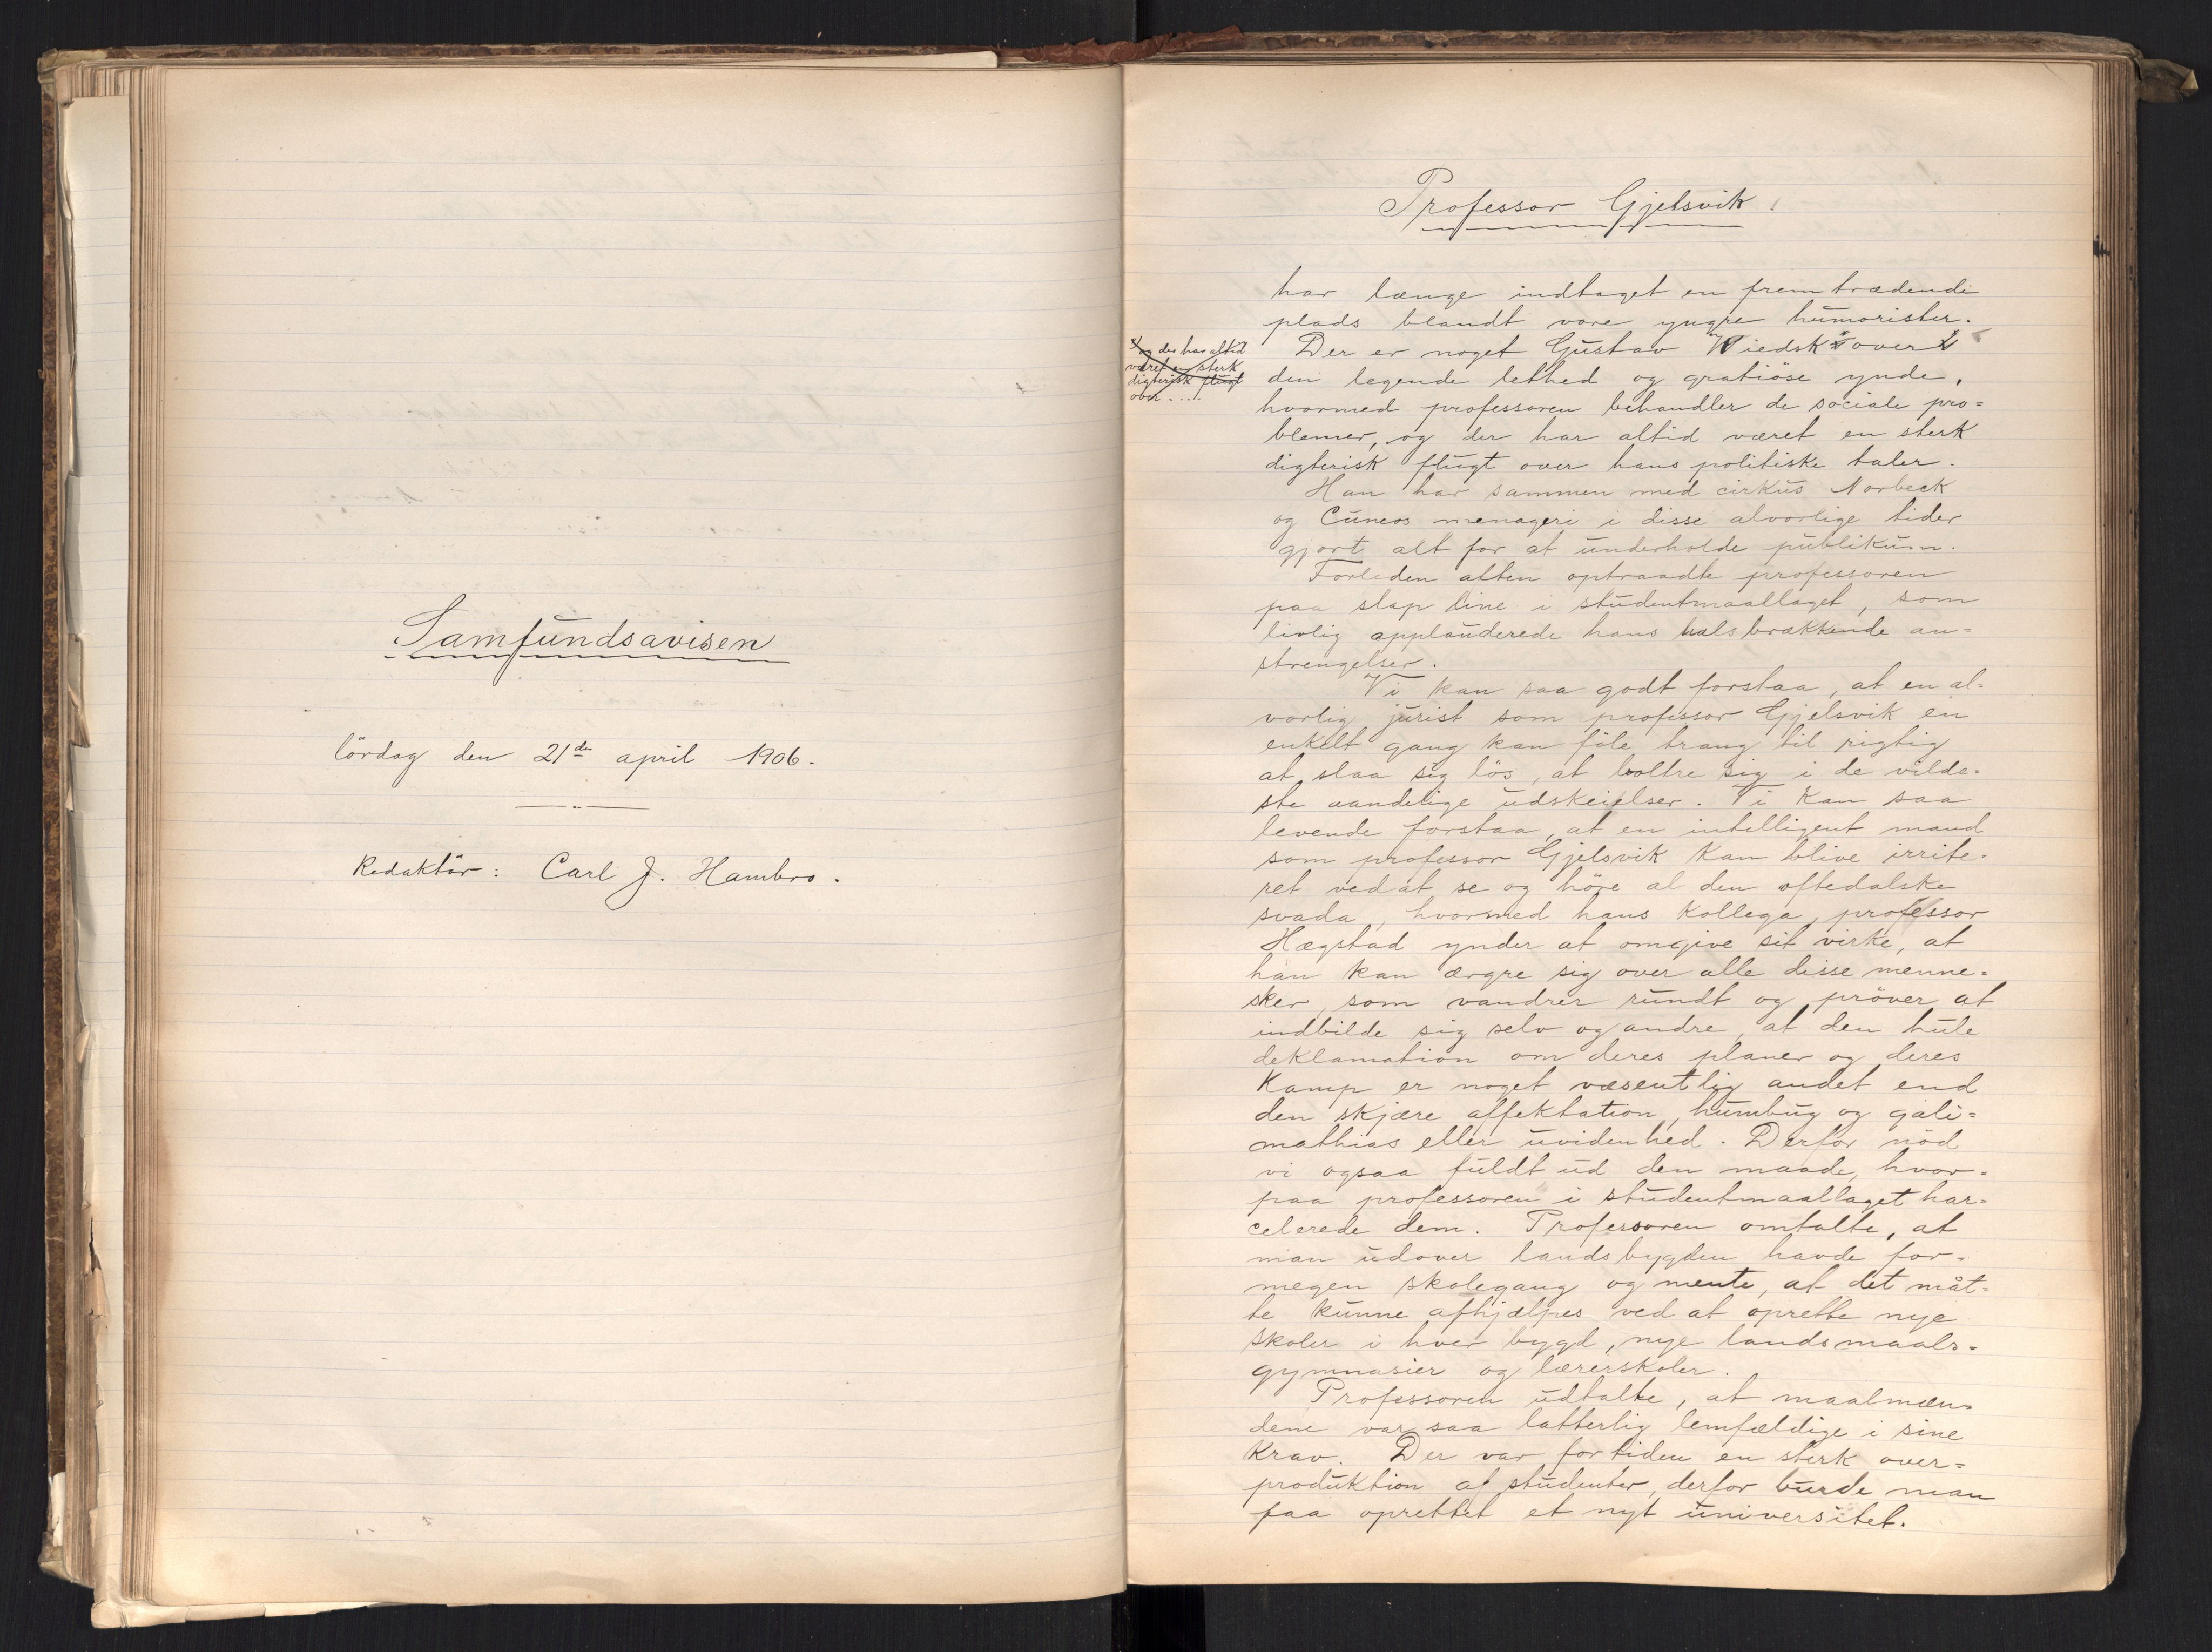 Samfundsavisen
lördag den 21de april 1906.
Redaktör: Carl J. Hambro.
Professor Gjelsvik.
har længe indtaget en fremtrædende
plads blandt vore yngre humorister.
Der er noget Gustav Wiedsk over
den legende lethed og gratiöse ynde,
hvormed professoren behandler de sociale pro=
blemer, og der har altid været en sterk
digterisk flugt over hans politiske taler.
og der har altid
været en sterk
digterisk flugt
over....
Han har sammen med cirkus Norbeck
og Cuneos menageri i disse alvorlige tider
gjort alt for at underholde publikum.
Forleden aften optraadte professoren
paa slap line i studentmaallaget, som
livlig applauderede hans halsbrækkende an=
strengelser.
Vi kan saa godt forstaa, at en al=
vorlig jurist som professor Gjelsvik en
enkelt gang kan föle trang til rigtig
at slaa sig lös, at boltre sig i de vilde=
ste aandelige udskeielser. Vi kan saa
levende forstaa, at en intelligent mand
som professor Gjelsvik kan blive irrite=
ret ved at se og höre al den oftedalske
svada, hvormed hans kollega, professor
Hægstad ynder at omgive sit virke, at
han kan ærgre sig over alle disse menne=
sker, som vandrer rundt og pröver at
indbilde sig selv og andre, at den hule
deklamation om deres planer og deres
kamp er noget væsentlig andet end
den skjære affektation, humbug og gali=
mathias eller uvidenhed. Derfor nöd
vi ogsaa fuldt ud den maade, hvor=
paa professoren i studentmaallaget har=
celerede dem. Professoren omtalte, at
man udover landsbygden havde for=
megen skolegang og mente, at det måt=
te kunne afhjælpes ved at oprette nye
skoler i hver bygd, nye landsmaals=
gymnasier og lærerskoler.
Professoren udtalte, at maalmæn=
dene var saa latterlig lemfældige i sine
krav. Der var for tiden en sterk over=
produktion af studenter, derfor burde man
faa oprettet et nyt universitet.